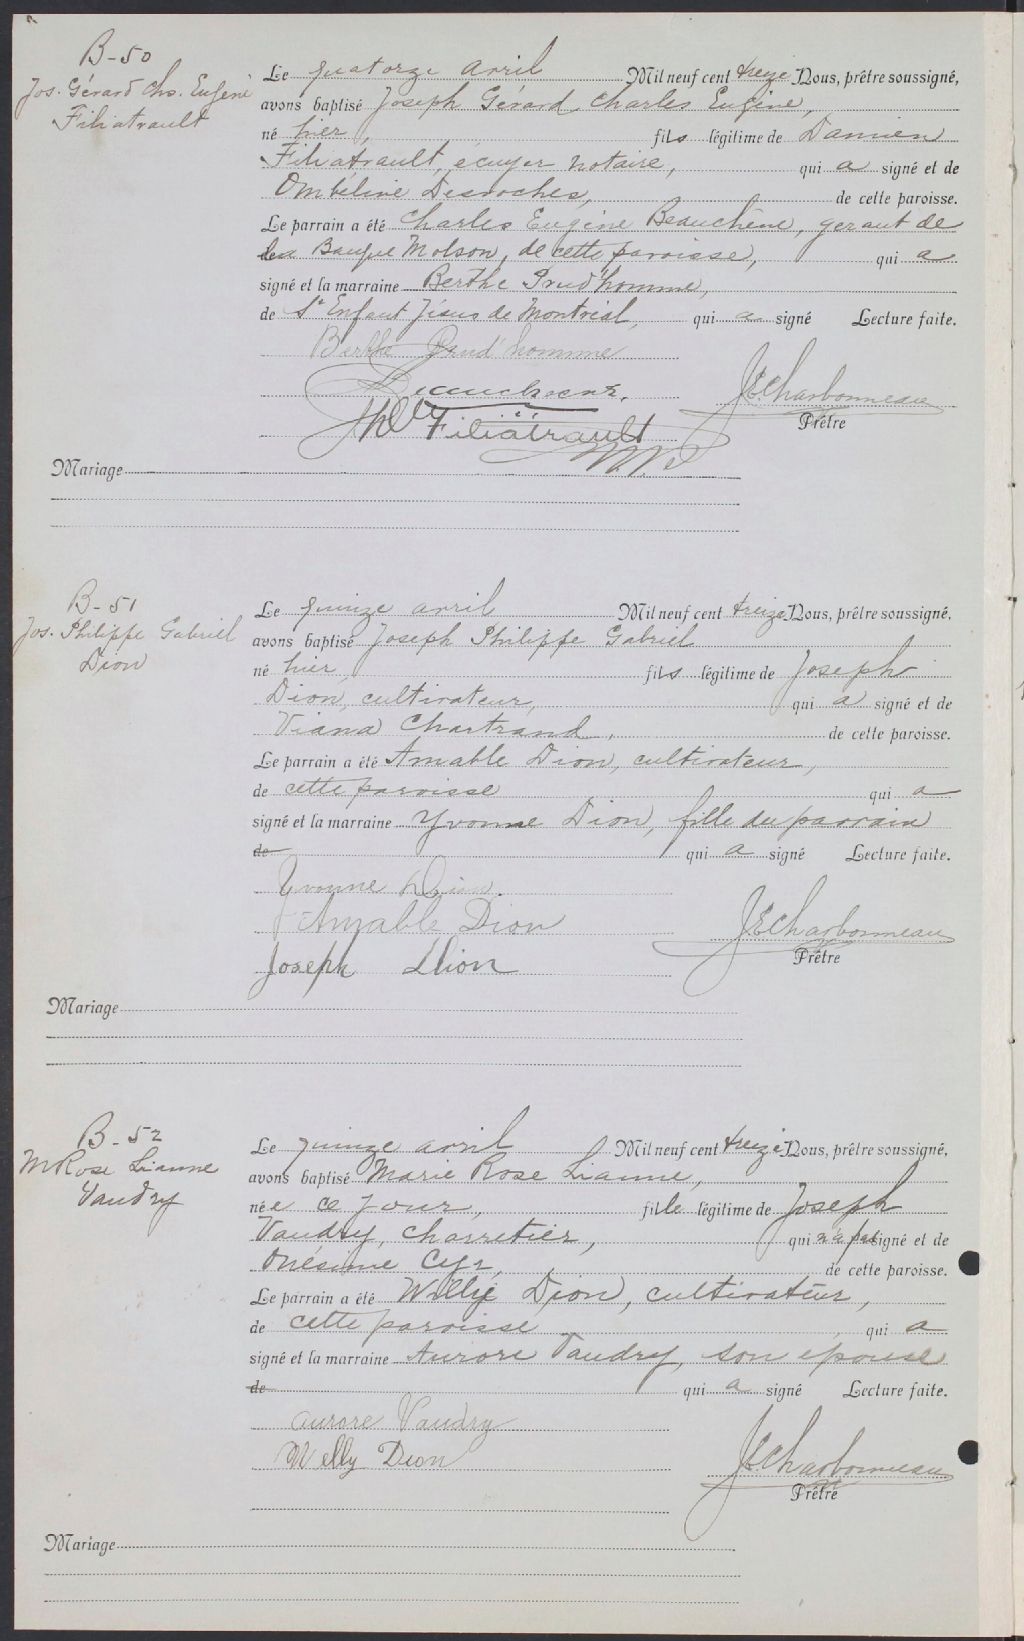 B-50
Jos. Gérard Chs. Eugène
Filiatrault
Le quatorze avril Mil neuf cent treize Nous, prêtre soussigné,
avons baptisé Joseph Gérard Charles Eugène,
né hier, fils légitime de Damien
Filiatrault, écuyer notaire, qui a signé et de
Ombéline Desroches, de cette paroisse.
Le parrain a été Charles Eugène Beauchêne, gerant de
la Banque Molson, de cette paroisse, qui a
signé et la marraine Berthe Prud'homme,
de St Enfant Jésus de Montréal, qui a signé Lecture faite.
Berthe Prud'homme
Beauchesne.
J.E. Charbonneau
Filiatrault
Prêtre
Mariage
B-51
Jos. Philippe Gabriel
Dion
Le quinze avril Mil neuf cent treize Nous, prêtre soussigné,
avons baptisé Joseph Philippe Gabriel
né hier, fils légitime de Joseph
Dion, cultivateur, qui a signé et de
Viana Chartrand, de cette paroisse.
Le parrain a été Amable Dion, cultivateur,
de cette paroisse qui a
signé et la marraine Yvonne Dion, fille du parrain
de qui a signé Lecture faite.
Yvonne Dion.
Amable Dion
J.E. Charbonneau
Joseph Dion
Prêtre
Mariage
B-52
M Rose Lianne
Vaudry
Le quinze avril Mil neuf cent treize Nous, prêtre soussigné,
avons baptisé Marie Rose Lianne,
née ce jour, fille légitime de Joseph
Vaudry, charretier, qui n'a pas signé et de
Onésime Cyr, de cette paroisse.
Le parrain a été Willie Dion, cultivateur,
de cette paroisse qui a
signé et la marraine Aurore Vaudry, son épouse
de qui a signé Lecture faite.
Aurore Vaudry
Welly Dion
J.E. Charbonneau
Prêtre
Mariage